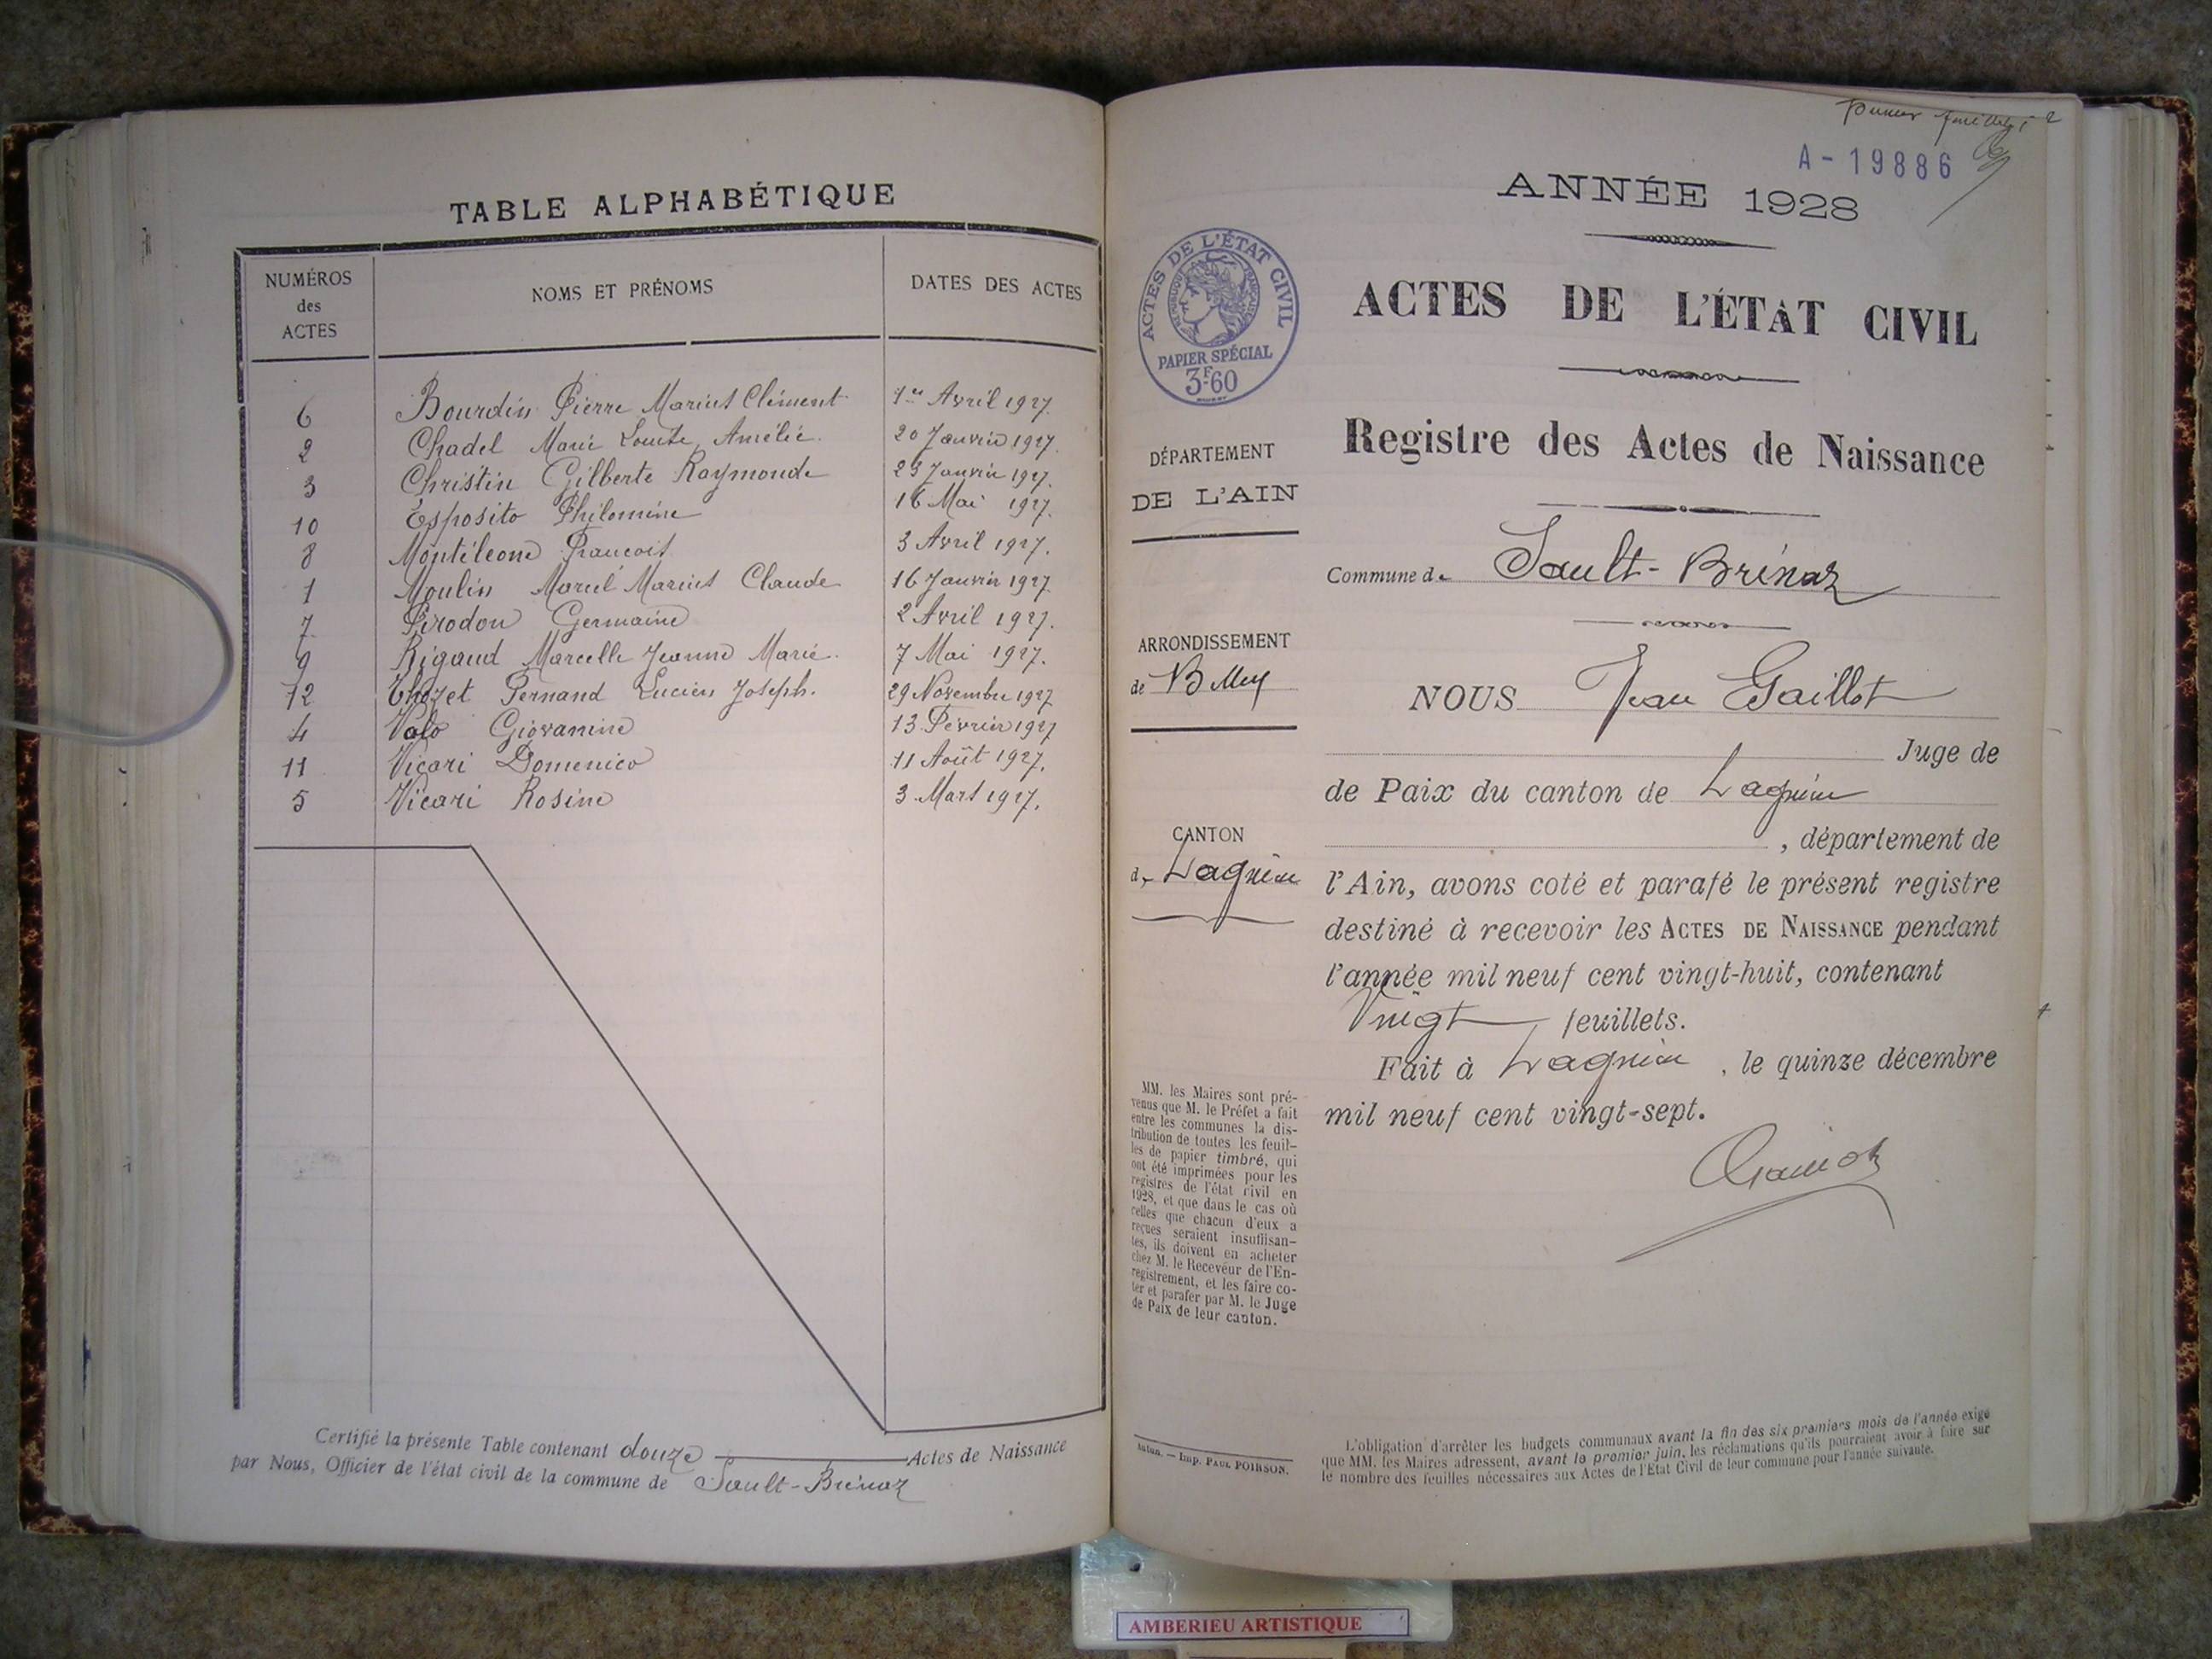 TABLE ALPHABÉTIQUE
NUMÉROS des ACTES NOMS ET PRÉNOMS DATES DES ACTES
6 Bourdin Pierre Marius Clément 1er Avril 1927.
2 Chadel Marie Louise Amélie. 20 Janvier 1927.
3 Christin Gilberte Raymonde 23 Janvier 1927.
10 Esposito Philomène 16 Mai 1927.
8 Montéleone François 3 Avril 1927.
1 Moulin Marcel Marius Claude 16 Janvier 1927
7 Pirodon Germaine 2 Avril 1927.
9 Rigaud Marcelle Jeanne Marie. 7 Mai 1927.
12 Thozet Fernand Lucien Joseph. 29 Novembre 1927
4 Valo Giovanine 13 Février 1927
11 Vicari Domenico 11 Août 1927.
5 Vicari Rosine 3 Mars 1927.
Certifié la présente Table contenant douze Actes de Naissance
par Nous, Officier de l'état civil de la commune de Sault-Brénaz
A-19886
ANNÉE 1928
ACTES DE L'ÉTAT CIVIL
RÉPUBLIQUE FRANÇAISE
PAPIER SPÉCIAL
3F60
ACTES DE L'ÉTAT CIVIL
Registre des Actes de Naissance
DÉPARTEMENT
DE L'AIN
Commune de Sault-Brénaz
ARRONDISSEMENT
de Belley
NOUS Jean Gaillot
Juge de
de Paix du canton de Lagnieu
CANTON
de Lagnieu
, département de
l'Ain, avons coté et parafé le présent registre
destiné à recevoir les ACTES DE NAISSANCE pendant
l'année mil neuf cent vingt-huit, contenant
Vingt feuillets.
Fait à Lagnieu, le quinze décembre
mil neuf cent vingt-sept.
MM. les Maires sont pré-
venus que M. le Préfet a fait
entre les communes la dis-
tribution de toutes les feuil-
les de papier timbré, qui
ont été imprimées pour les
registres de l'état civil en
1928, et que dans le cas où
celles que chacun d'eux a
reçues seraient insuffisan-
tes, ils doivent en acheter
chez M. le Receveur de l'En-
registrement, et les faire co-
ter et parafer par M. le Juge
de Paix de leur canton.
Autun. — Imp. PAUL POIRSON.
L'obligation d'arrêter les budgets communaux avant la fin des six premiers mois de l'année exige
que MM. les Maires adressent, avant le premier juin, les réclamations qu'ils pourraient avoir à faire sur
le nombre des feuilles nécessaires aux Actes de l'Etat Civil de leur commune pour l'année suivante.
AMBERIEU ARTISTIQUE